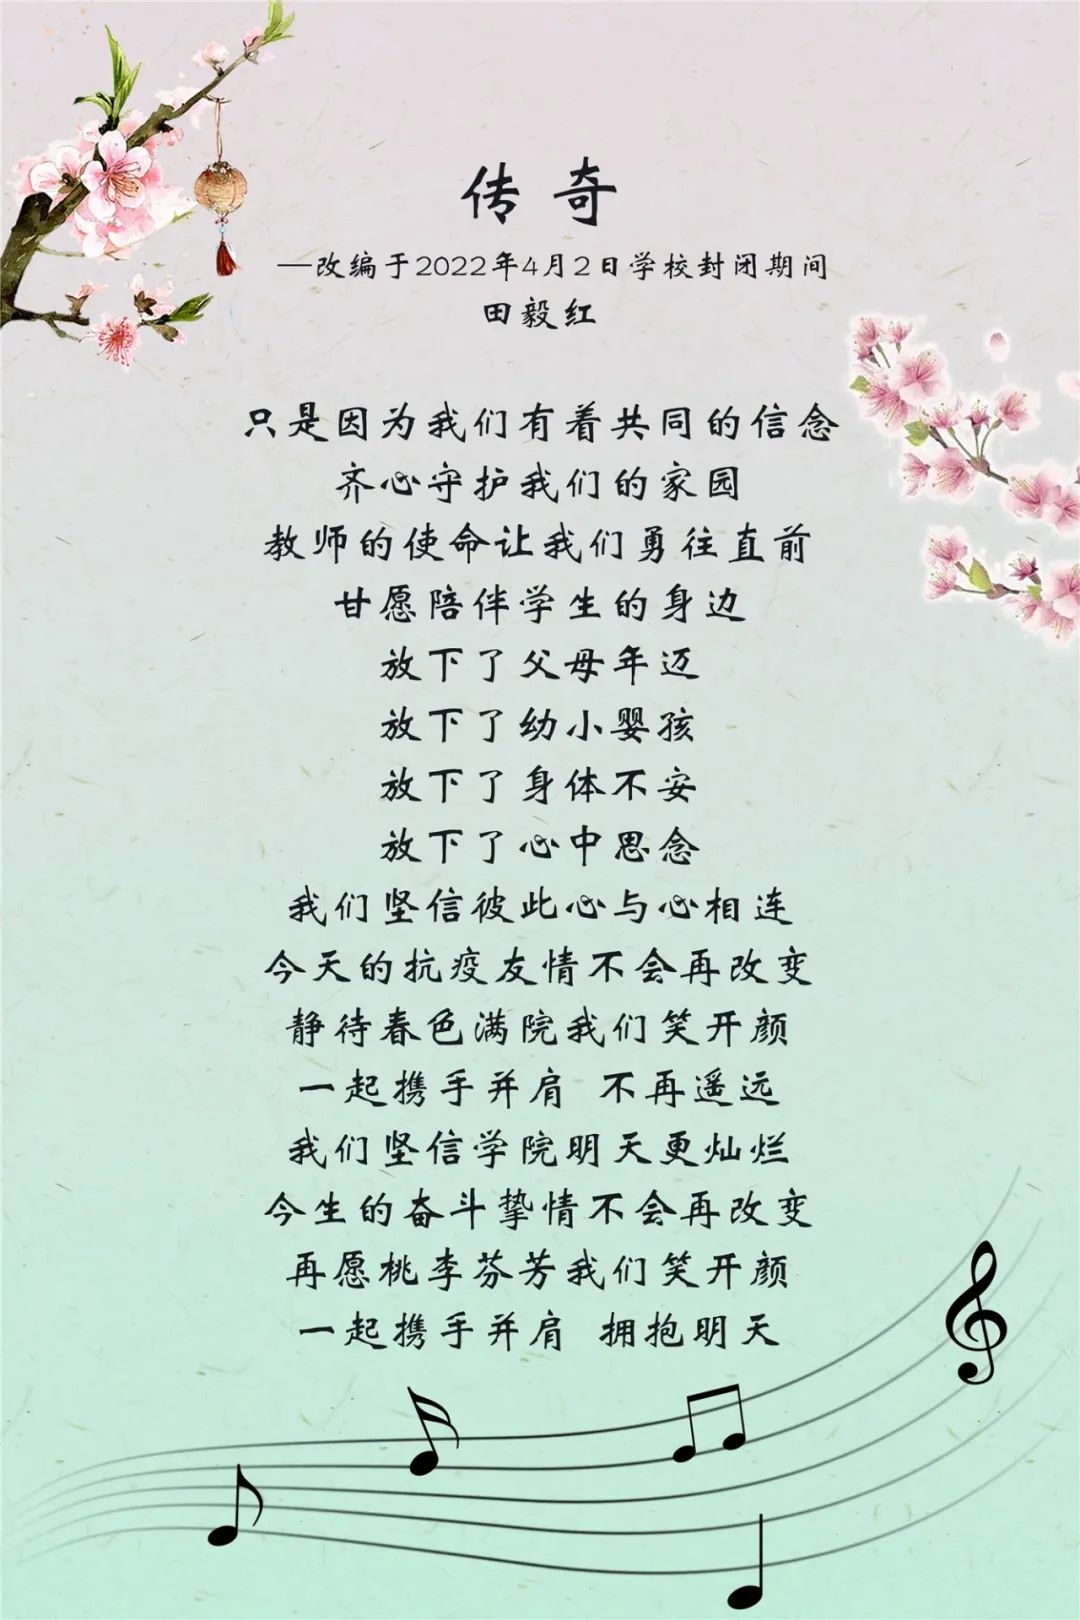 传奇
—改编于2022年4月2日学校封闭期间
田毅红
只是因为我们有着共同的信念
齐心守护我们的家园
教师的使命让我们勇往直前
甘愿陪伴学生的身边
放下了父母年迈
放下了幼小婴孩
放下了身体不安
放下了心中思念
我们坚信彼此心与心相连
今天的抗疫友情不会再改变
静待春色满院我们笑开颜
一起携手并肩 不再遥远
我们坚信学院明天更灿烂
今生的奋斗挚情不会再改变
再愿桃李芬芳我们笑开颜
一起携手并肩 拥抱明天